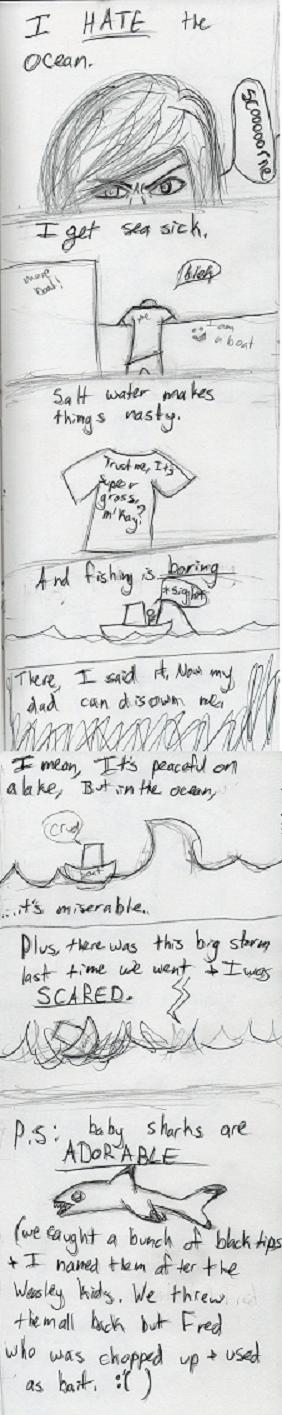 I HATE the
ocean.
scooooorne
I get sea sick.
more
boat!
bleh
me
I am
a boat
Salt water makes
things nasty.
Trust me, It's
super
gross,
m'kay?
And fishing is boring
*sigh*
There, I said it. Now my
dad can disown me.
I mean, It's peaceful on
a lake, But in the ocean,
crud
boat
...it's miserable.
Plus, there was this big storm
last time we went + I was
SCARED.
P.S: baby sharks are
ADORABLE
(we caught a bunch of black tips
+ I named them after the
Weasley kids. We threw
them all back but Fred
who was chopped up + used
as bait. :'( )